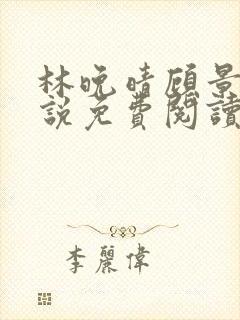 林晚晴顾景
說免費閱讀
李麗偉